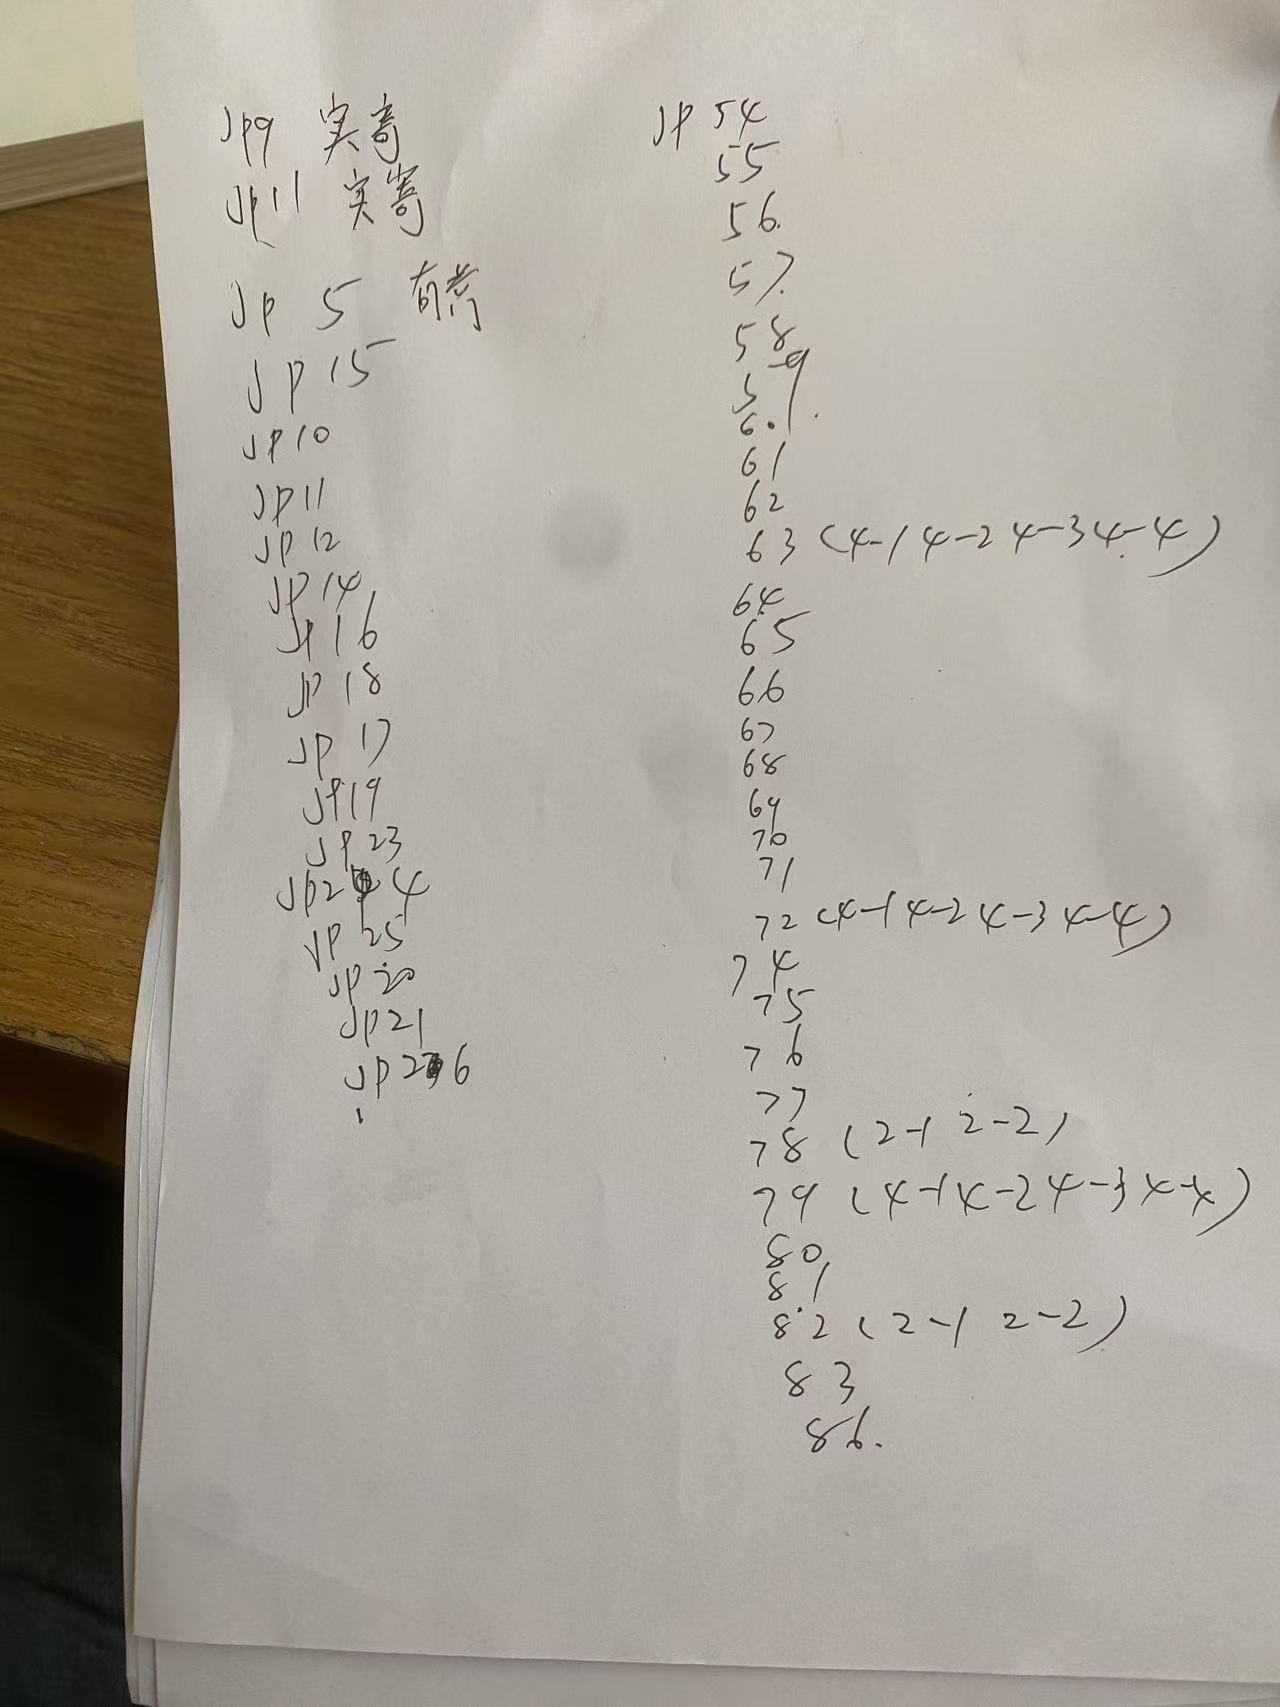 JP9 实寄
JP11 实寄
JP 5 有荒
JP 15
JP10
JP11
JP12
JP14
JP16
JP 18
JP 17
JP19
JP23
JP24
JP25
JP20
JP21
JP26
JP 54
55
56.
57.
58
59
60.
61
62
63 (4-1 4-2 4-3 4-4)
64
65
66
67
68
69
70
71
72 (4-1 4-2 4-3 4-4)
74
75
76
77
78 (2-1 2-2)
79 (4-1 4-2 4-3 4-4)
80
81
82 (2-1 2-2)
83
86.